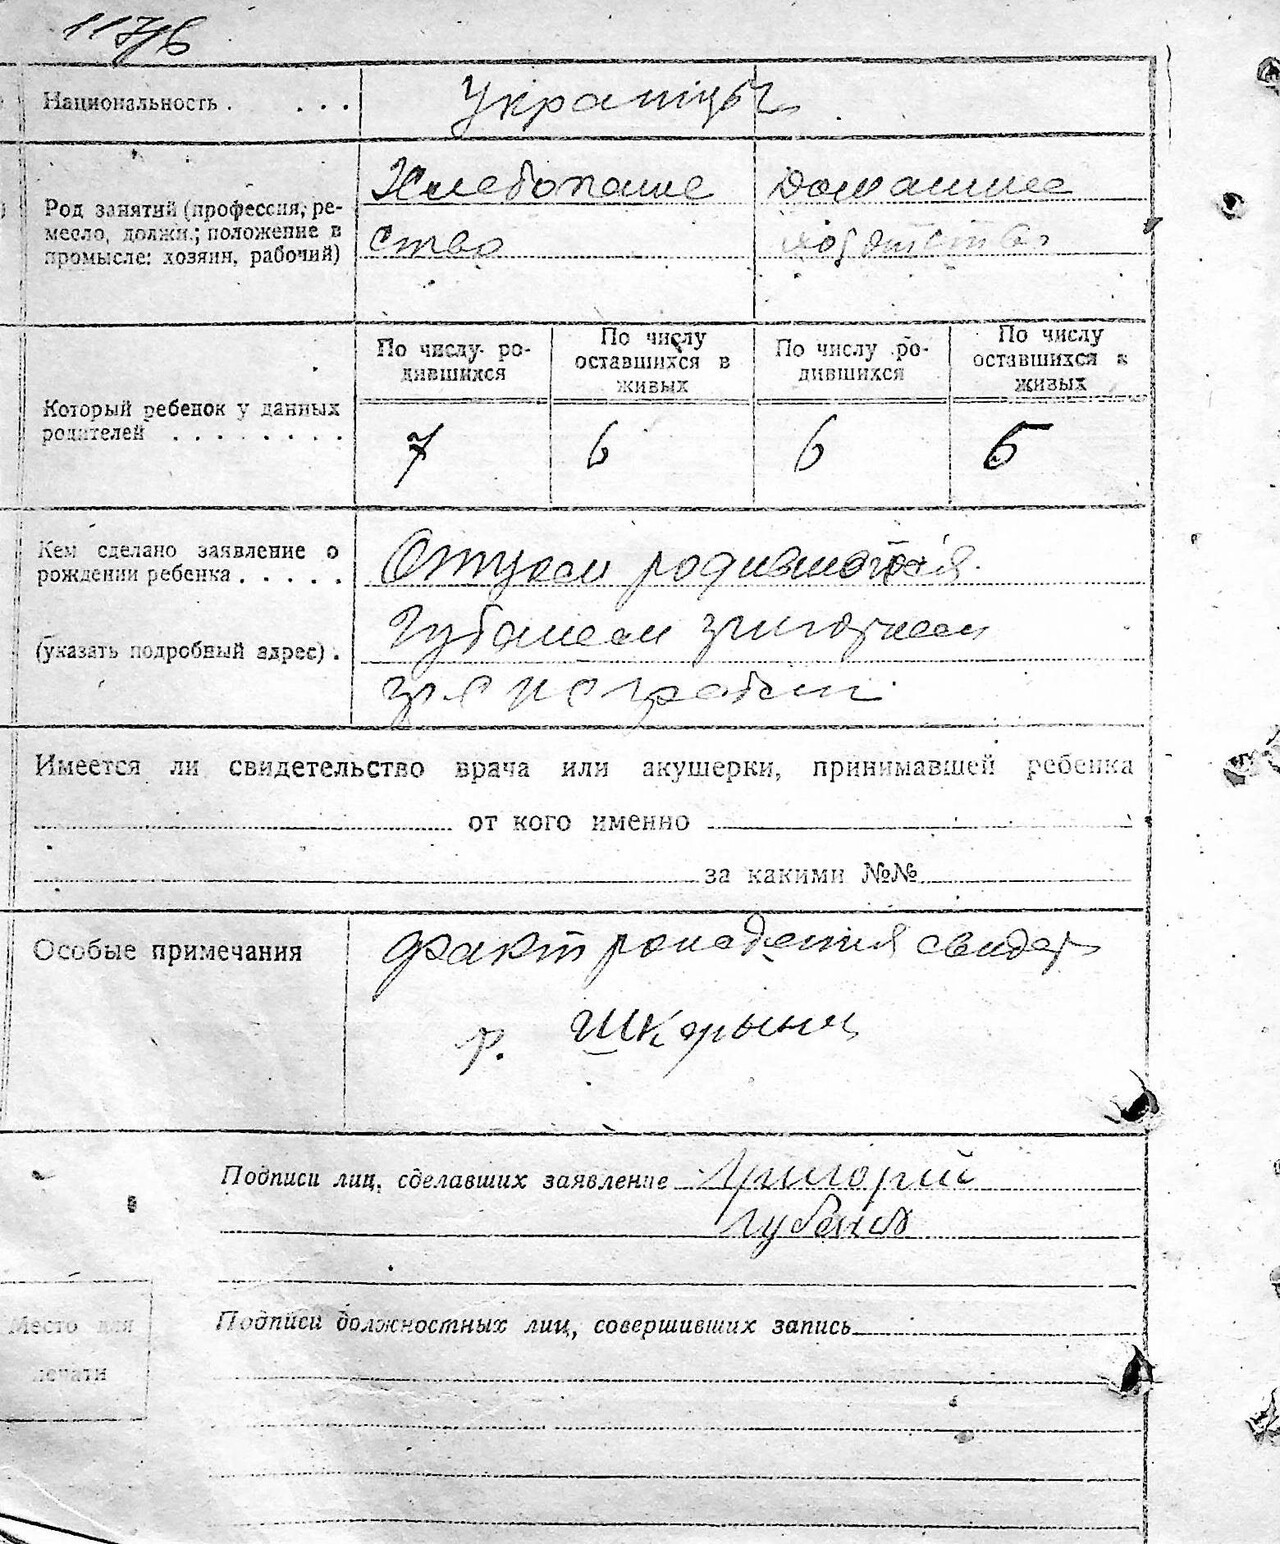 117/6
Национальность . . . . Украинцы
Род занятий (профессия, ре-
месло, должн.; положение в
промысле: хозяин, рабочий)
Хлебопаше
ство
Домашнее
По числу ро-
дившихся
По числу
оставшихся в
живых
По числу ро-
дившихся
По числу
оставшихся в
живых
Который ребенок у данных
родителей . . . . . . . .
7 6 6 5
Кем сделано заявление о
рождении ребенка . . . . .
(указать подробный адрес) .
Отцом родившогося
Губанем
Имеется ли свидетельство врача или акушерки, принимавшей ребенка
от кого именно
за какими №№
Особые примечания
факт рождения свидет
р.
Подписи лиц, сделавших заявление Григорий
Губань
Место для
печати
Подписи должностных лиц, совершивших запись